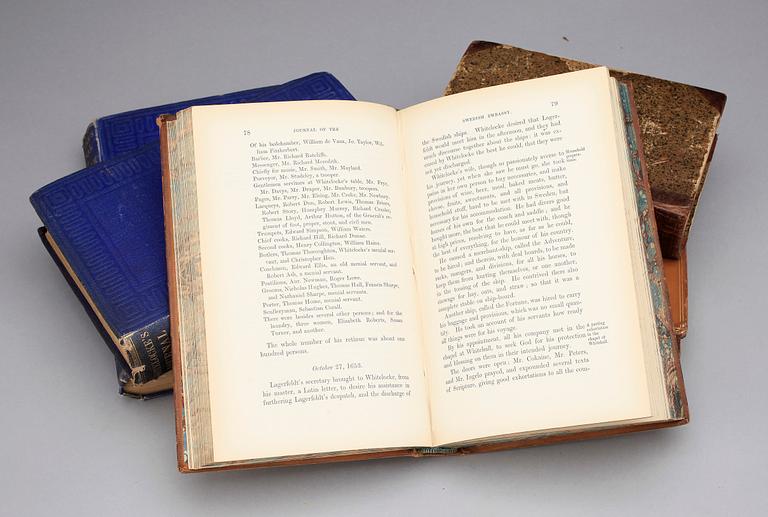 78
JOURNAL OF THE
Of his bedchamber, William de Vaux, Jo. Taylor, Wil-
liam Fitzherbert.
Barber, Mr. Richard Ratcliffe.
Messenger, Mr. Richard Meredith.
Chiefly for music, Mr. Smith, Mr. Maylard.
Purveyor, Mr. Stadeley, a trooper.
Gentlemen servitors at Whitelocke's table, Mr. Frye,
Mr. Davys, Mr. Draper, Mr. Banbury, troopers.
Pages, Mr. Parry, Mr. Elsing, Mr. Croke, Mr. Newbery.
Lacqueys, Robert Dun, Robert Lewis, Thomas Eden,
Robert Story, Humphry Murrey, Richard Cresler,
Thomas Lloyd, Arthur Hutton, of the General's re-
giment of foot, proper, stout, and civil men.
Trumpets, Edward Simpson, William Waters.
Chief cooks, Richard Hill, Richard Dunne.
Second cooks, Henry Collington, William Hains.
Butlers, Thomas Thoroughton, Whitelocke's menial ser-
vant, and Christopher Hen.
Coachmen, Edward, an old menial servant, and
Robert Ash, a menial servant.
Postilions, Aur. Newman, Roger Lowe.
Grooms, Nicholas Hughes, Thomas Hull, Francis Sharpe,
and Nathanial Sharpe, menial servants.
Porter, Thomas Home, menial servant.
Sculleryman, Sebastian Corull.
There were besides several other persons; and for the
laundry, three women, Elizabeth Roberts, Susan
Turner, and another.
The whole number of his retinue was about one
hundred persons.
October 27, 1653.
Lagerfeldt's secretary brought to Whitelocke, from
his master, a Latin letter, to desire his assistance in
furthering Lagerfeldt's despatch, and the discharge of
SWEDISH EMBASSY.
79
the Swedish ships. Whitelocke desired that Lager-
feldt would meet him in the afternoon, and they had
much discourse together about the ships: it was ex-
cused by Whitelocke the best he could, that they were
not yet discharged.
Whitelocke's wife, though so passionately averse to
his journey, yet when she saw he must go, she took
pains in her own person to buy necessaries, and make
provisions of wine, beer, meal, baked meats, butter,
cheese, fruits, sweetmeats, and all provisions, and
household stuff, hard to be met with in Sweden, but
necessary for his accommodation. He had divers good
horses of his own for the coach and saddle; and he
bought more, the best that he could meet with, though
at high prices, resolving to have, as far as he could,
the best of everything, for the honour of his country.
Household
prepara-
tions.
He caused a merchant-ship, called the Adventure,
to be hired; and therein, with deal boards, to be made
racks, mangers, and divisions, for all his horses, to
keep them from hurting themselves, or one another,
in the tossing of the ship. He contrived there also
mowage for hay, oats, and straw; so that it was a
complete stable on ship-board.
Another ship, called the Fortune, was hired to carry
his baggage and provisions, which was no small quan-
tity. He took an account of his servants how ready
all things were for his voyage.
By his appointment, all his company met in the
chapel at Whitehall, to seek God for his protection
and blessing on them in their intended journey.
A parting
exhortation
in the
chapel at
Whitehall.
The doors were open; Mr. Cokaine, Mr. Peters,
and Mr. Ingelo prayed, and expounded several texts
of Scripture, giving good exhortations to all the com-